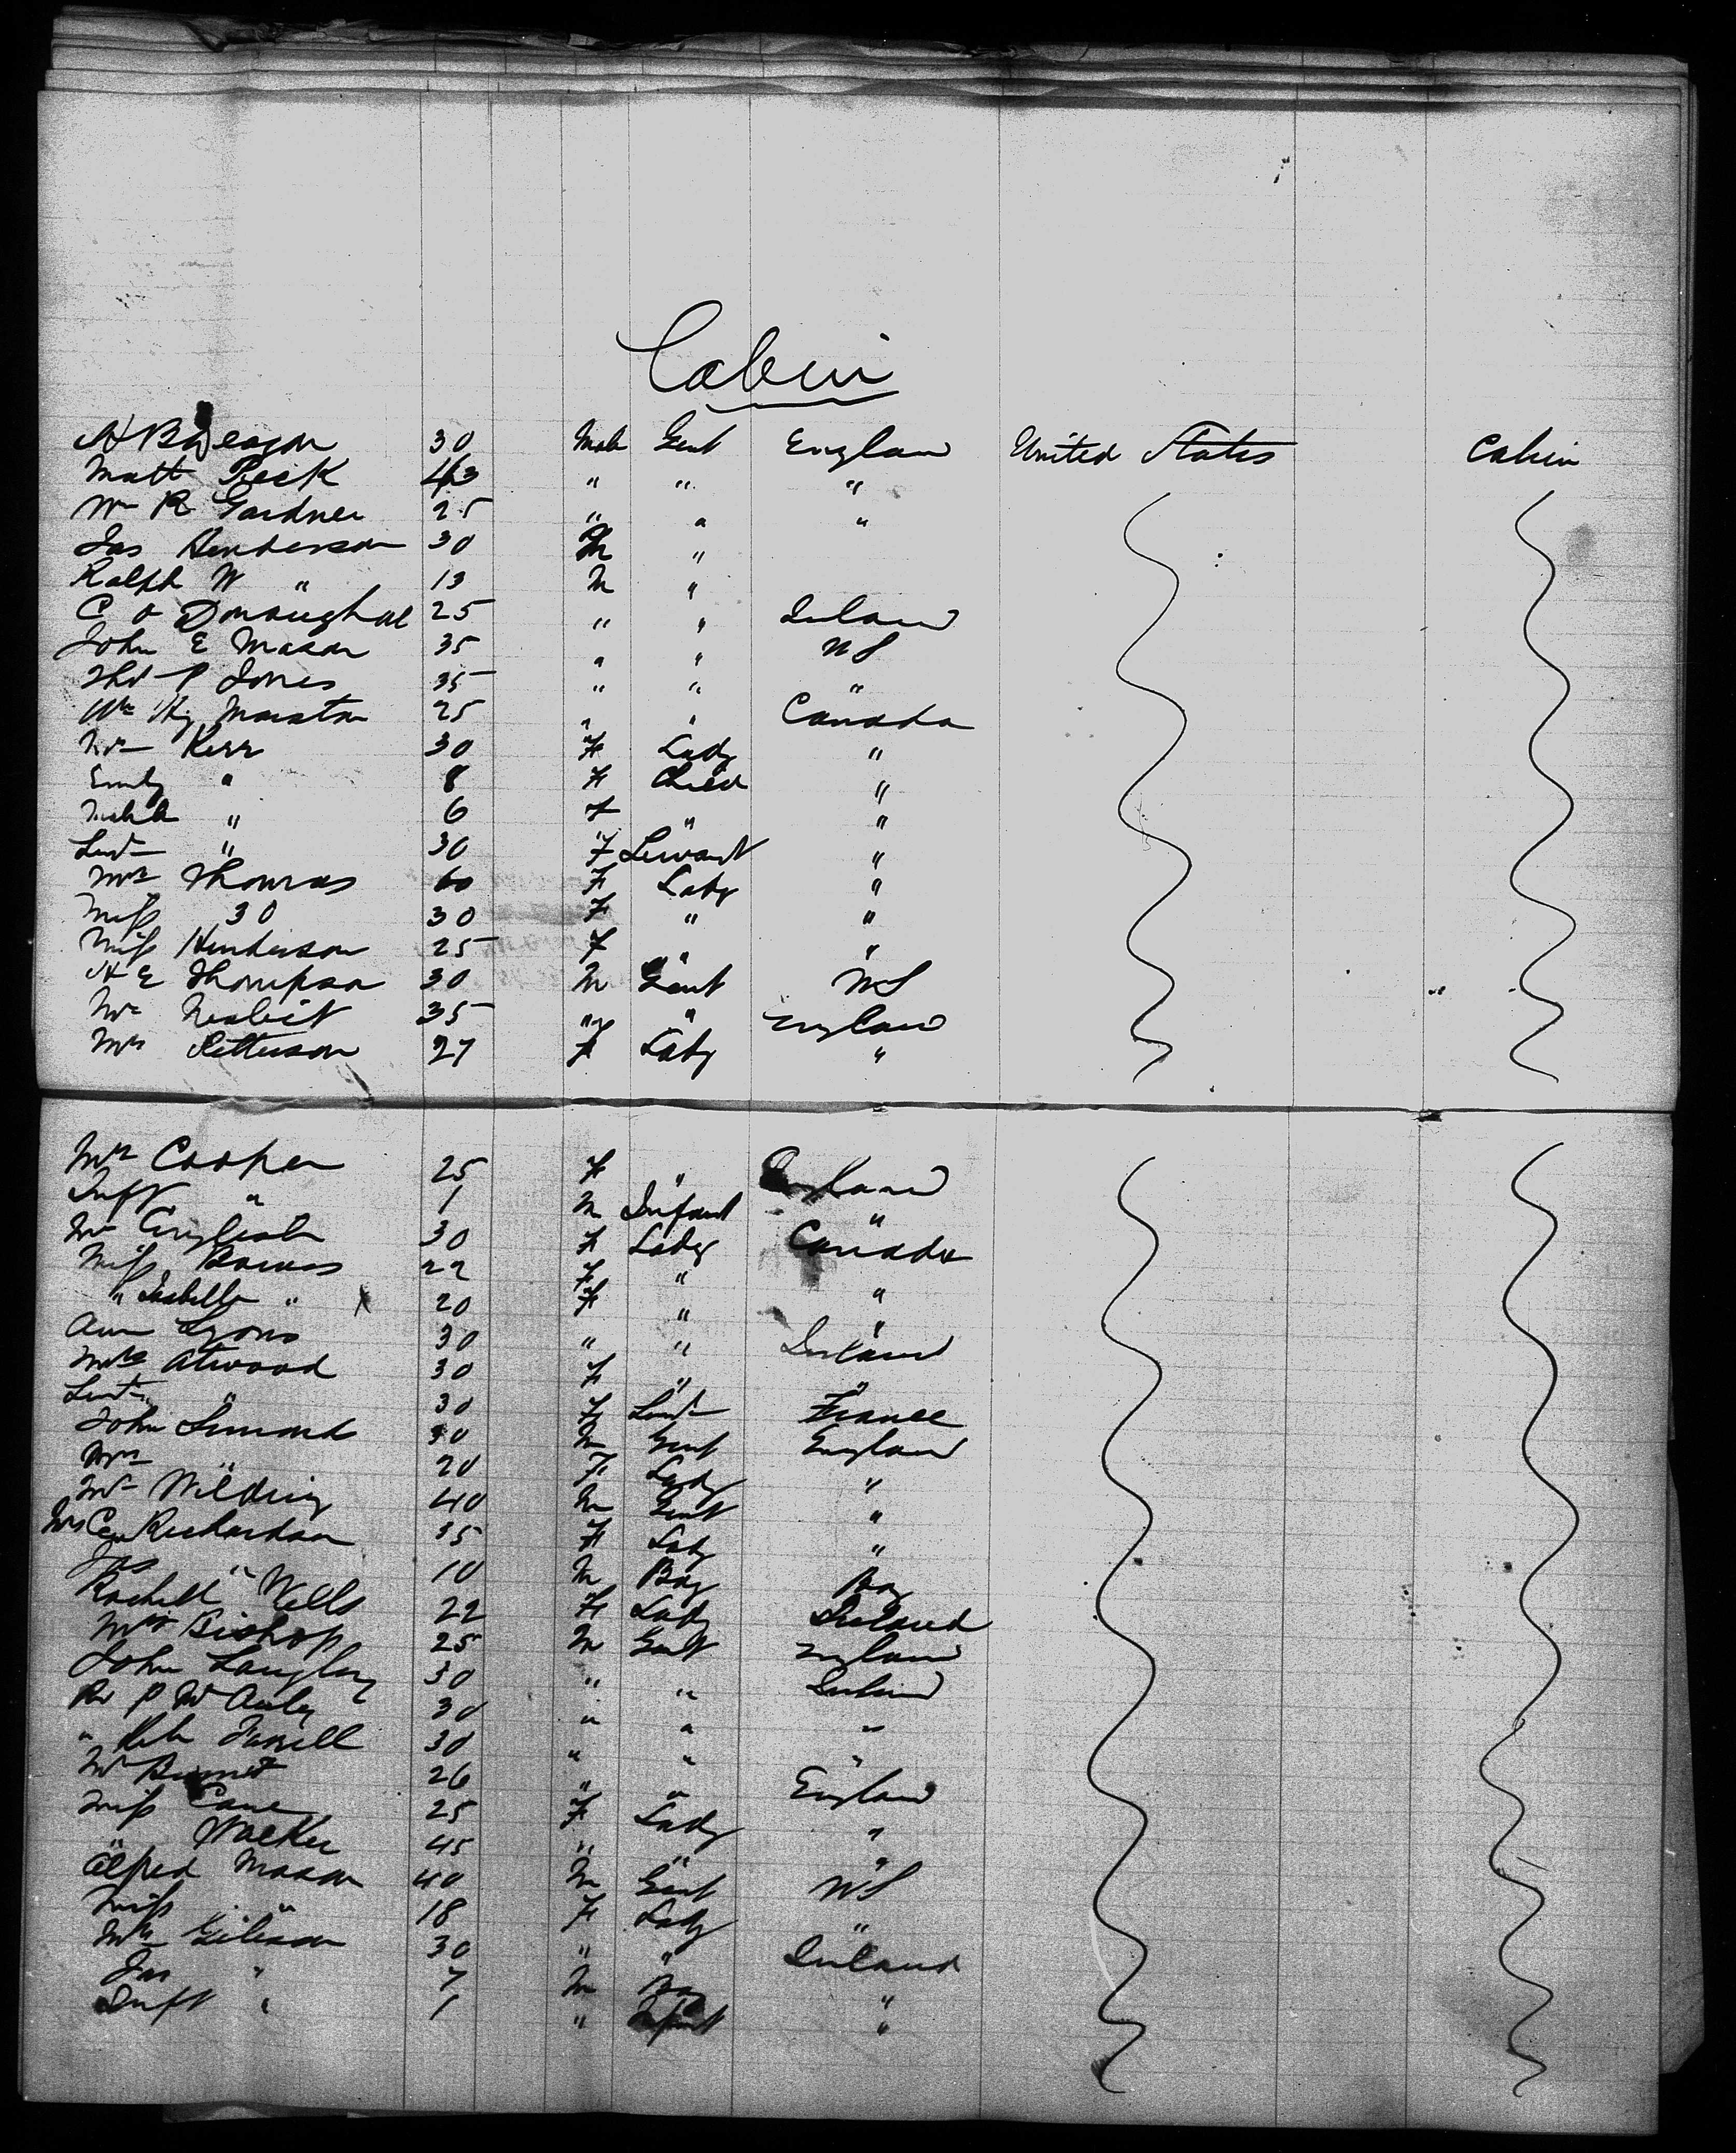 Cabin
H B Deason 30 Male Gent England United States Cabin
Matt Peek 43 " " "
Wm R Gardner 25 " " "
Jas Henderson 30 M "
Ralph W " 13 M "
C O Donaughue 25 " " Ireland
John E Mason 35 " " US
Tho P Jones 35 " " "
Wm Hy Marston 25 " " Canada
Mrs Kerr 30 F Lady "
Emily " 8 F Child "
" 6 F " "
Servt " 30 F Servant "
Mrs Thomas 60 F Lady "
Miss 30 30 F " "
Miss Henderson 25 F " "
H E Thompson 30 M Gent US
Mr Nesbeit 35 " " England
Mrs Petterson 27 F Lady "
Mrs Cooper 25 F " England
Inft " 1 M Infant "
Mrs English 30 F Lady Canada
Miss 22 F " "
" Isabella " 20 F " "
Ann Lyons 30 " " Ireland
Mrs Atwood 30 F " "
Servt " 30 F Servt France
John Simond 30 M Gent England
Mrs " 20 F Lady "
Mr Wilding 40 M Gent "
Mrs Richardson 35 F Lady "
Jas " 10 M Boy Boy
Rachell Wells 22 F Lady Ireland
Mr Bishop 25 M Gent England
John Langley 30 " " Ireland
Rv P Mc Auley 30 " " "
" Farrell 30 " " "
Mr Burnet 26 " " England
Miss Cane 25 F Lady "
" Walker 45 " " "
Alfred Mason 40 M Gent US
Miss " 18 F Lady "
Mrs Gibson 30 " " Ireland
Jas " 7 M Boy "
Inft " 1 " Infant "